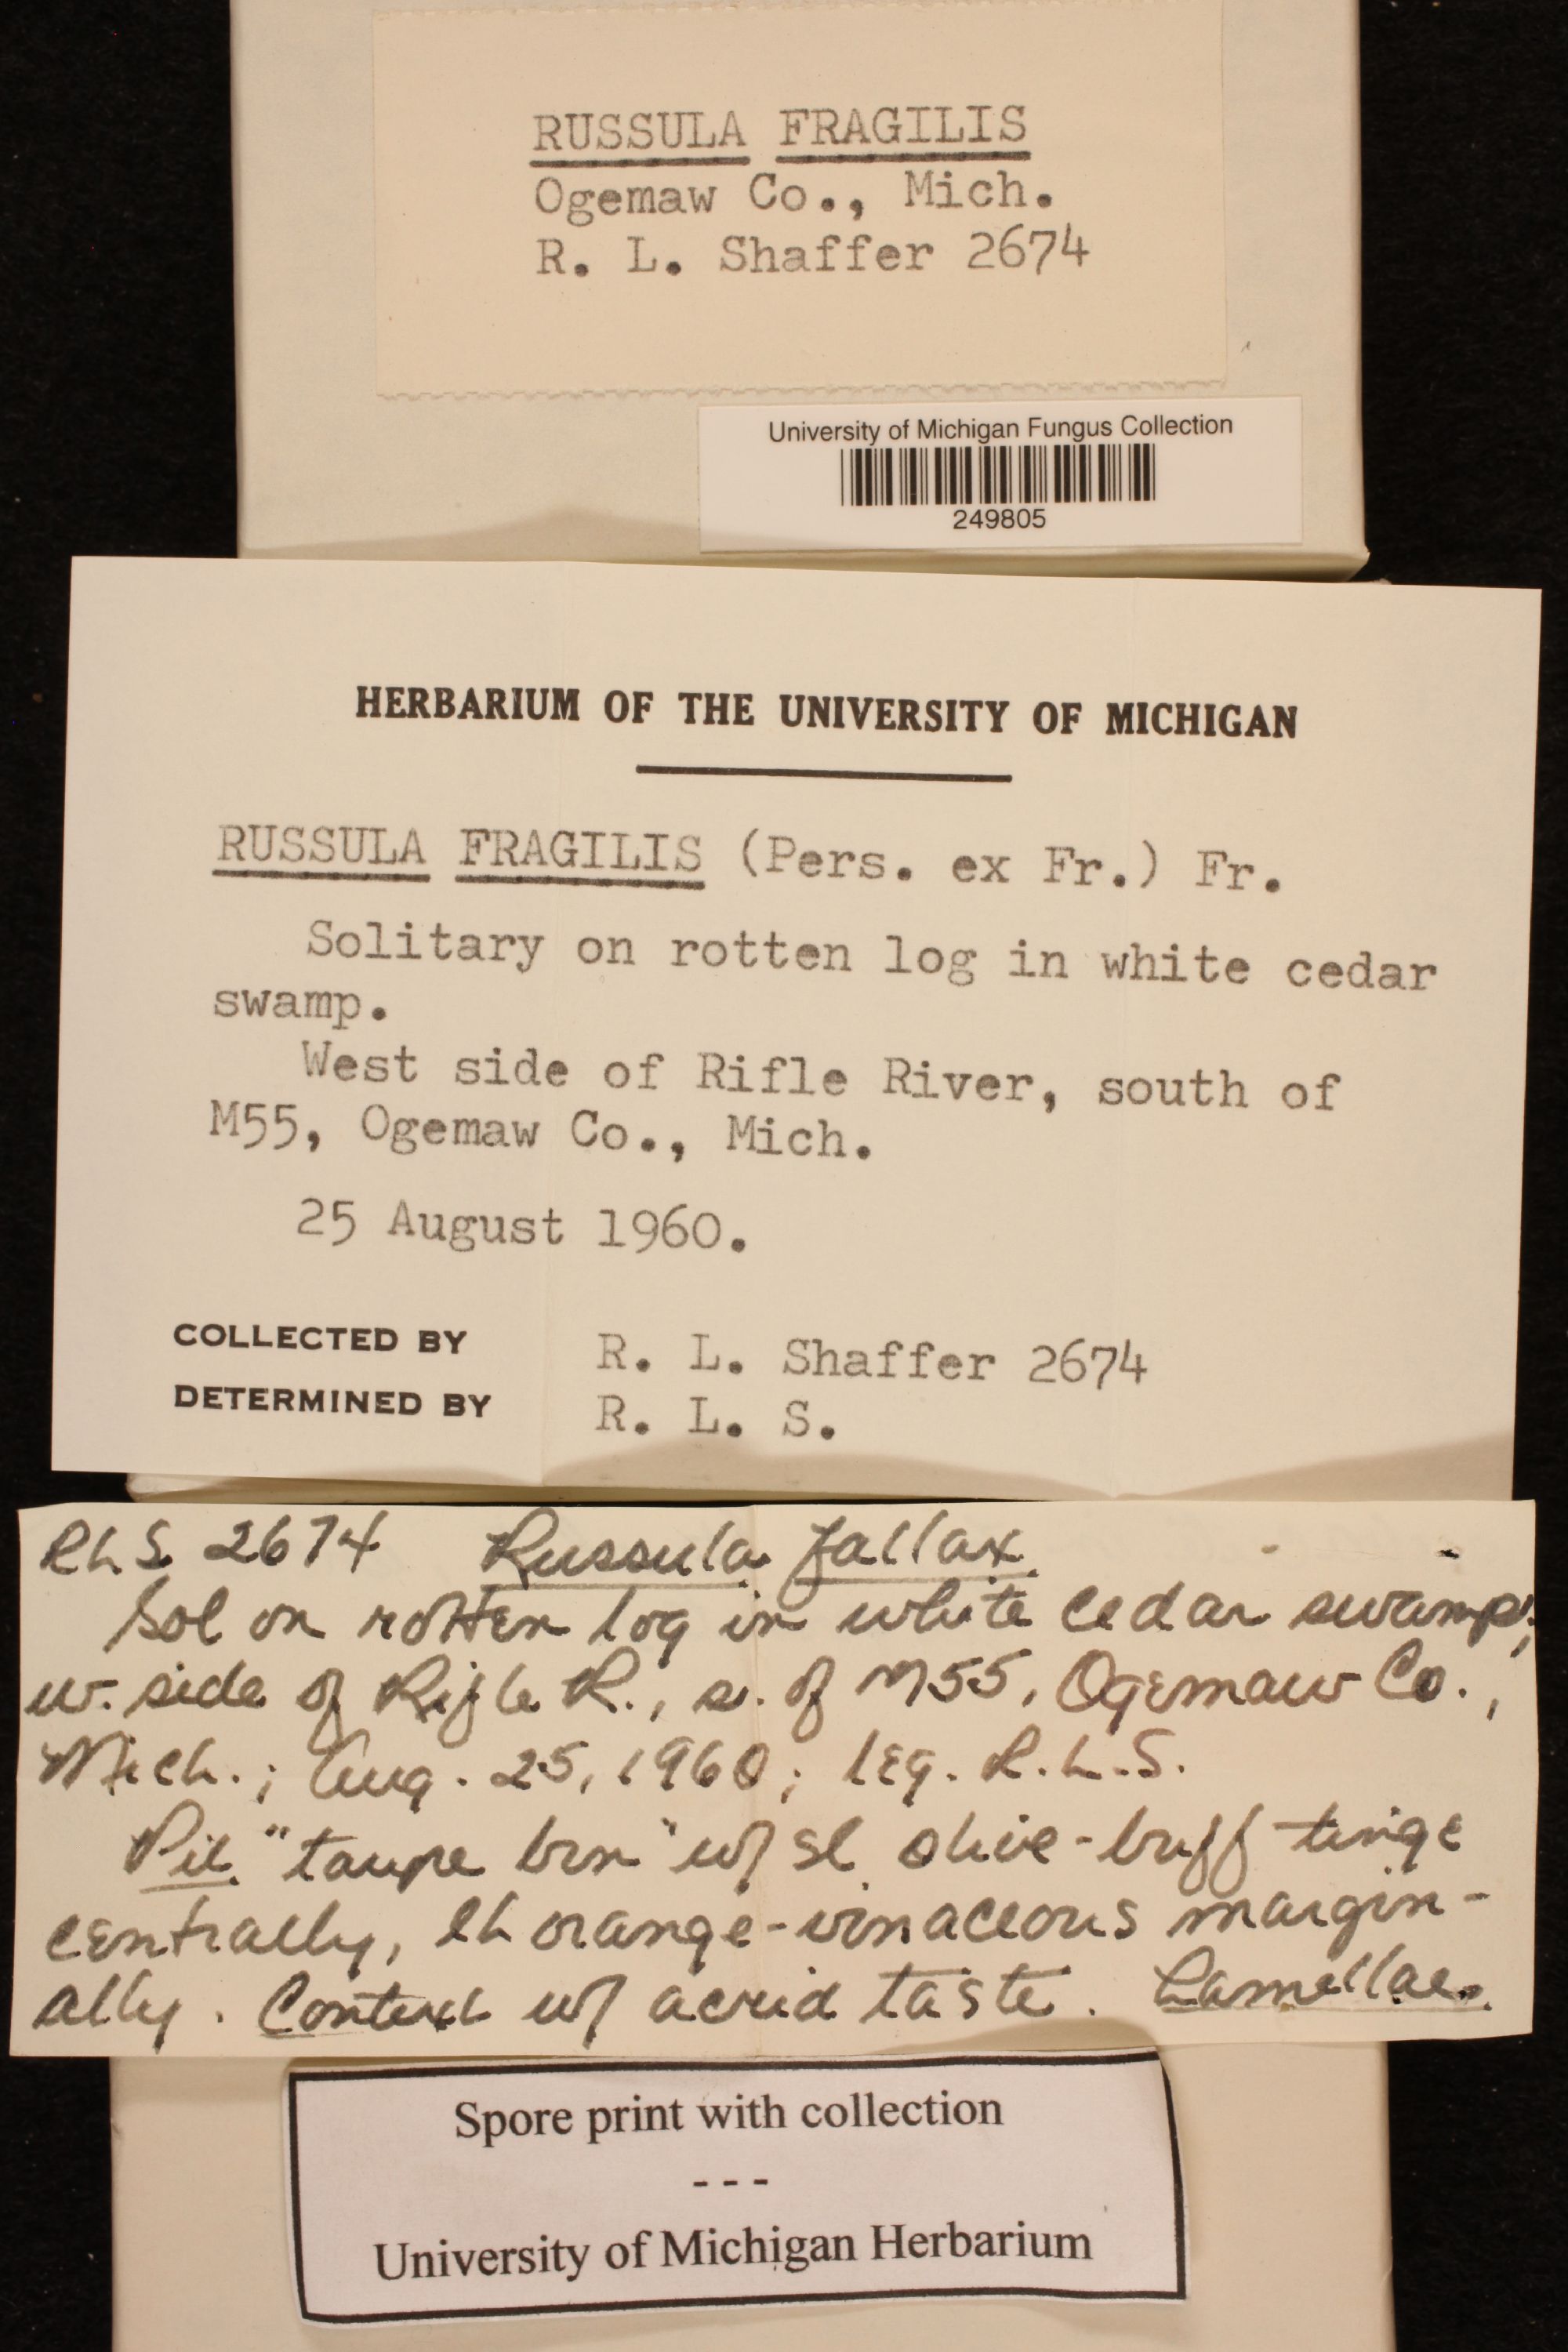 RUSSULA FRAGILIS
Ogemaw Co., Mich.
R. L. Shaffer 2674
University of Michigan Fungus Collection
249805
HERBARIUM OF THE UNIVERSITY OF MICHIGAN
RUSSULA FRAGILIS (Pers. ex Fr.) Fr.
Solitary on rotten log in white cedar
swamp.
West side of Rifle River, south of
M55, Ogemaw Co., Mich.
25 August 1960.
COLLECTED BY R. L. Shaffer 2674
DETERMINED BY R. L. S.
RLS 2674 Russula fallax
Sol on rotten log in white cedar swamp;
w. side of Rifle R., s. of M55, Ogemaw Co.,
Mich.; Aug. 25, 1960; leg. R.L.S.
Pil. "taupe brn" w/ sl olive-buff tinge
centrally, lt orange-vinaceous margin-
ally. Context w/ acrid taste. Lamellae
Spore print with collection
---
University of Michigan Herbarium